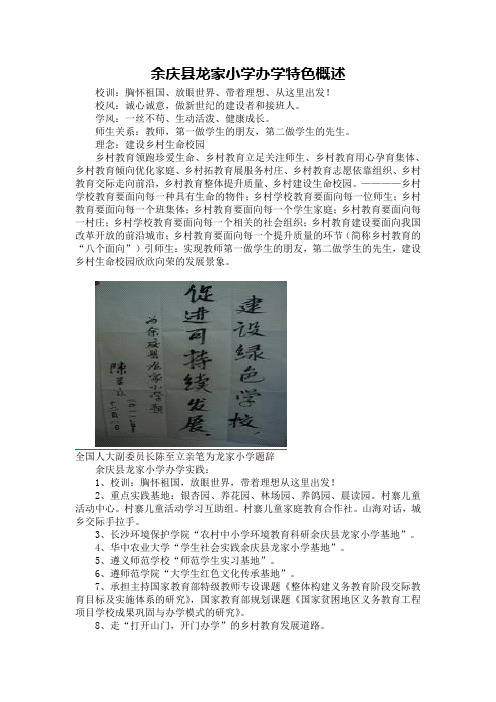 余庆县龙家小学办学特色概述
校训：胸怀祖国、放眼世界、带着理想、从这里出发！
校风：诚心诚意，做新世纪的建设者和接班人。
学风：一丝不苟、生动活泼、健康成长。
师生关系：教师，第一做学生的朋友，第二做学生的先生。
理念：建设乡村生命校园
乡村教育领跑珍爱生命、乡村教育立足关注师生、乡村教育用心孕育集体、
乡村教育倾向优化家庭、乡村拓教育展服务村庄、乡村教育志愿依靠组织、乡村
教育交际走向前沿，乡村教育整体提升质量、乡村建设生命校园。————乡村
学校教育要面向每一种具有生命的物件；乡村学校教育要面向每一位师生；乡村
教育要面向每一个班集体；乡村教育要面向每一个学生家庭；乡村教育要面向每
一村庄；乡村学校教育要面向每一个相关的社会组织；乡村教育建设要面向我国
改革开放的前沿城市；乡村教育要面向每一个提升质量的环节（简称乡村教育的
“八个面向”）引师生：实现教师第一做学生的朋友，第二做学生的先生，建设
乡村生命校园欣欣向荣的发展景象。
建设绿色学校，
促进可持续发展。
为余庆县龙家小学题
陈至立
全国人大副委员长陈至立亲笔为龙家小学题辞
余庆县龙家小学办学实践：
1、校训：胸怀祖国，放眼世界，带着理想从这里出发！
2、重点实践基地：银杏园、养花园、林场园、养鸽园、晨读园。村寨儿童
活动中心。村寨儿童活动学习互助组。村寨儿童家庭教育合作社。山海对话，城
乡交际手拉手。
3、长沙环境保护学院“农村中小学环境教育科研余庆龙家小学基地”。
4、华中农业大学“学生社会实践余庆龙家小学基地”。
5、遵义师范学校“师范学生实习基地”。
6、遵师范学院“大学生红色文化传承基地”。
7、承担主持国家教育部特级教师专设课题《整体构建义务教育阶段交际教
育目标及实施体系的研究》，国家教育部规划课题《国家贫困地区义务教育工程
项目学校成果巩固与办学模式的研究》。
8、走“打开山门，开门办学”的乡村教育发展道路。